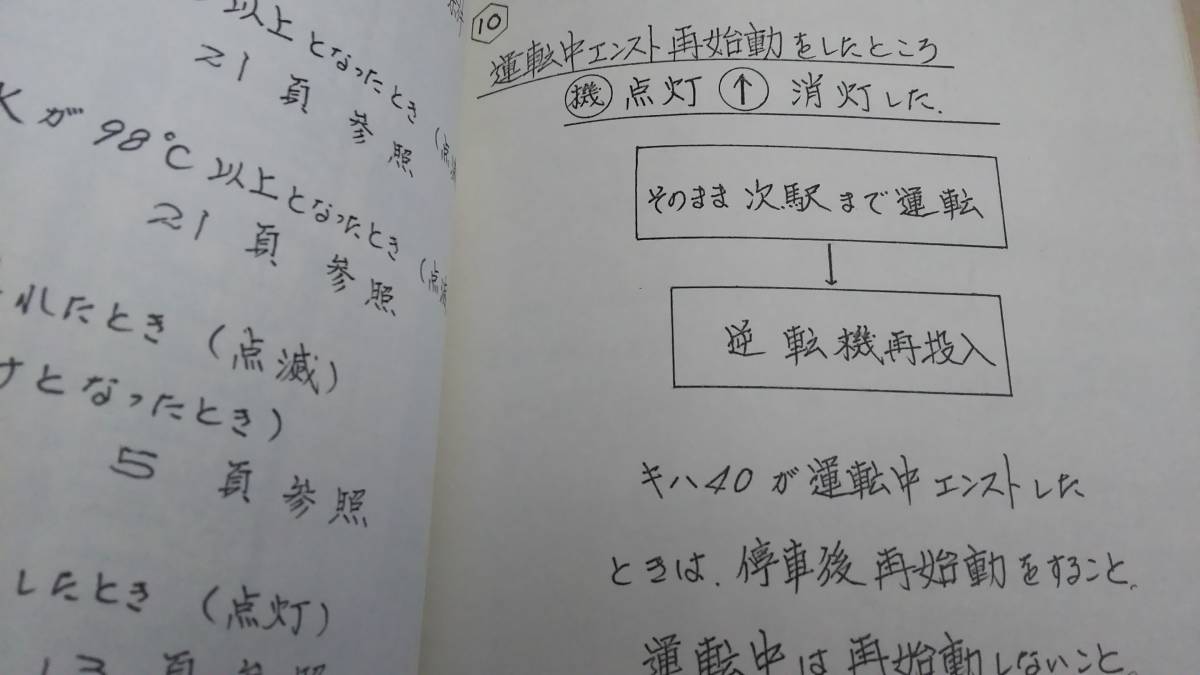 以上となったとき (点滅
21 頁 参照
が 98℃ 以上となったとき (点滅
21 頁 参照
れしたとき (点滅)
となったとき)
5 頁 参照
したとき (点灯)
13 頁 参照
10
運転中エンスト再始動をしたところ
機 点灯 ↑ 消灯した.
そのまま次駅まで運転
↓
逆転機再投入
キハ40が運転中エンストした
ときは、停車後再始動をすること、
運転中は再始動しないこと。